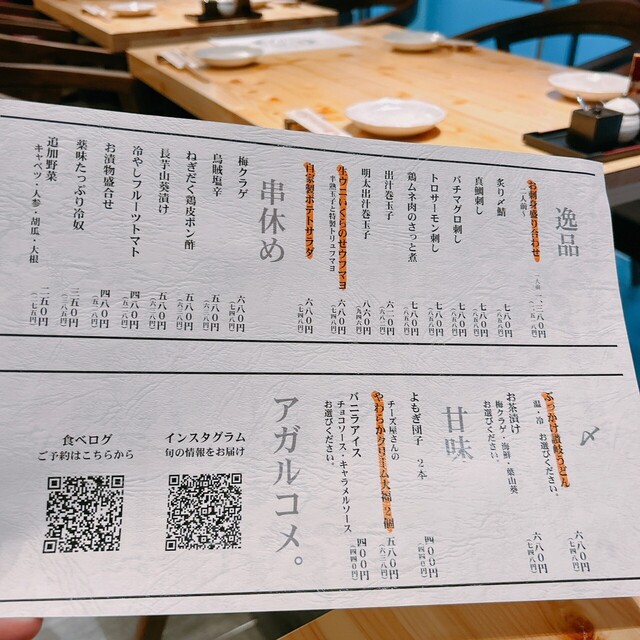 逸品
お刺身盛り合わせ
二人前〜
炙り〆鯖
七八〇円
(八五八円)
真鯛刺し
七八〇円
(八五八円)
バチマグロ刺し
七八〇円
(八五八円)
トロサーモン刺し
七八〇円
(八五八円)
鶏ムネ肉のさっと煮
七八〇円
(八五八円)
出汁巻玉子
六二〇円
(六八二円)
明太出汁巻玉子
八六〇円
(九四六円)
生ウニいくらのせウフマヨ
半熟玉子と特製トリュフマヨ
自家製ポテトサラダ
六八〇円
(七四八円)
串休め
梅クラゲ
六八〇円
(七四八円)
烏賊塩辛
五八〇円
(六三八円)
ねぎだく鶏皮ポン酢
五八〇円
(六三八円)
長芋山葵漬け
五八〇円
(六三八円)
冷やしフルーツトマト
四八〇円
(五二八円)
お漬物盛合せ
四八〇円
(五二八円)
薬味たっぷり冷奴
三五〇円
(三八五円)
追加野菜
キャベツ・人参・胡瓜・大根
二五〇円
(二七五円)
〆
ぶっかけ讃岐うどん
温・冷 お選びください。
六八〇円
(七四八円)
お茶漬け
梅クラゲ・海鮮・葉山葵
お選びください。
六八〇円
(七四八円)
甘味
よもぎ団子 2本
四〇〇円
(四四〇円)
チーズ屋さんの
やわらかクリーム大福 2個
五八〇円
(六三八円)
バニラアイス
チョコソース・キャラメルソース
お選びください。
四〇〇円
(四四〇円)
アガルコメ。
インスタグラム
旬の情報をお届け
食べログ
ご予約はこちらから